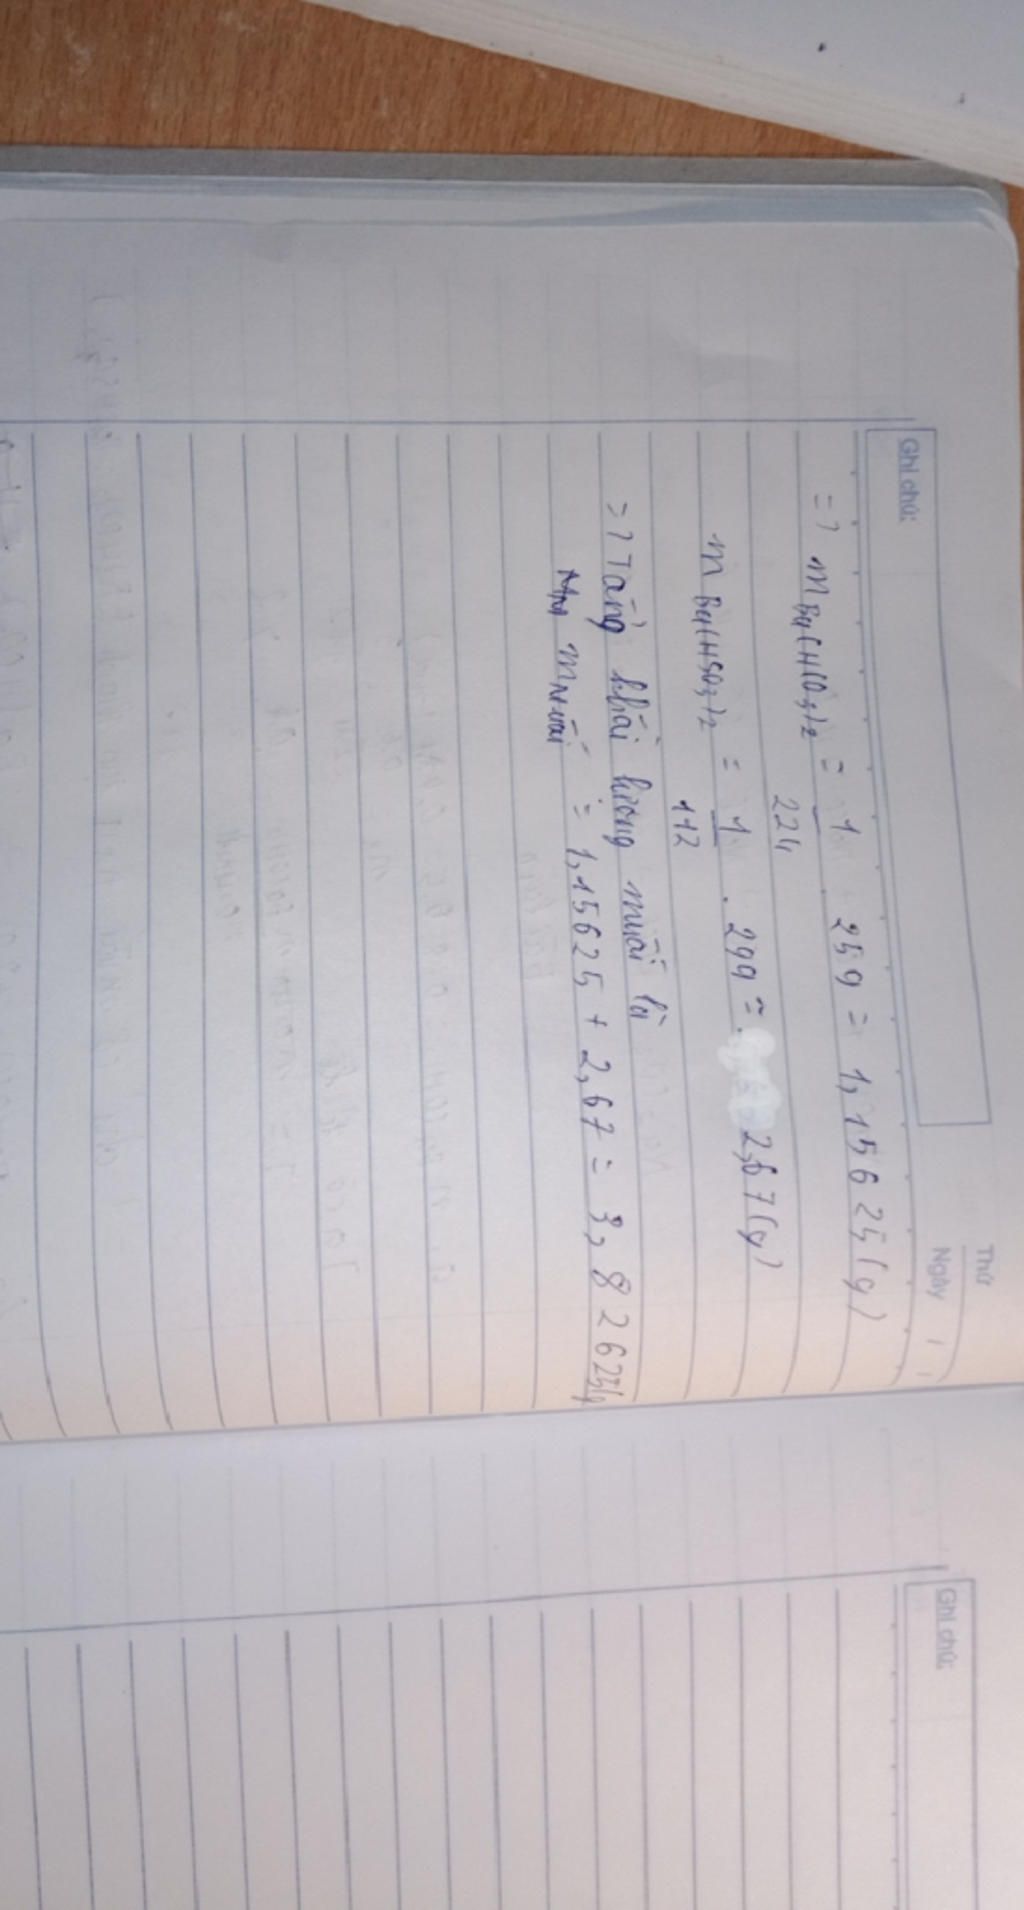 Thứ
Ngày / /
Ghi chú:
=> m Ba(HCO3)2 = 1/224 . 259 = 1,15625 (g)
m Ba(HSO3)2 = 1/112 . 299 = 2,67 (g)
=> Tổng khối lượng muối là
m muối = 1,15625 + 2,67 = 3,82625 (g
Ghi chú: